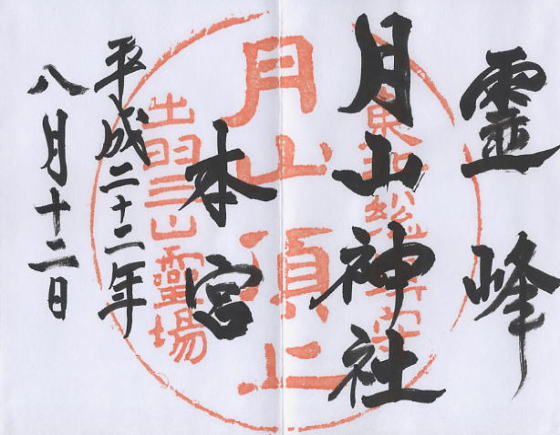 霊峰
月山神社
本宮
平成二十二年
八月十二日
月山頂上
出羽三山霊場